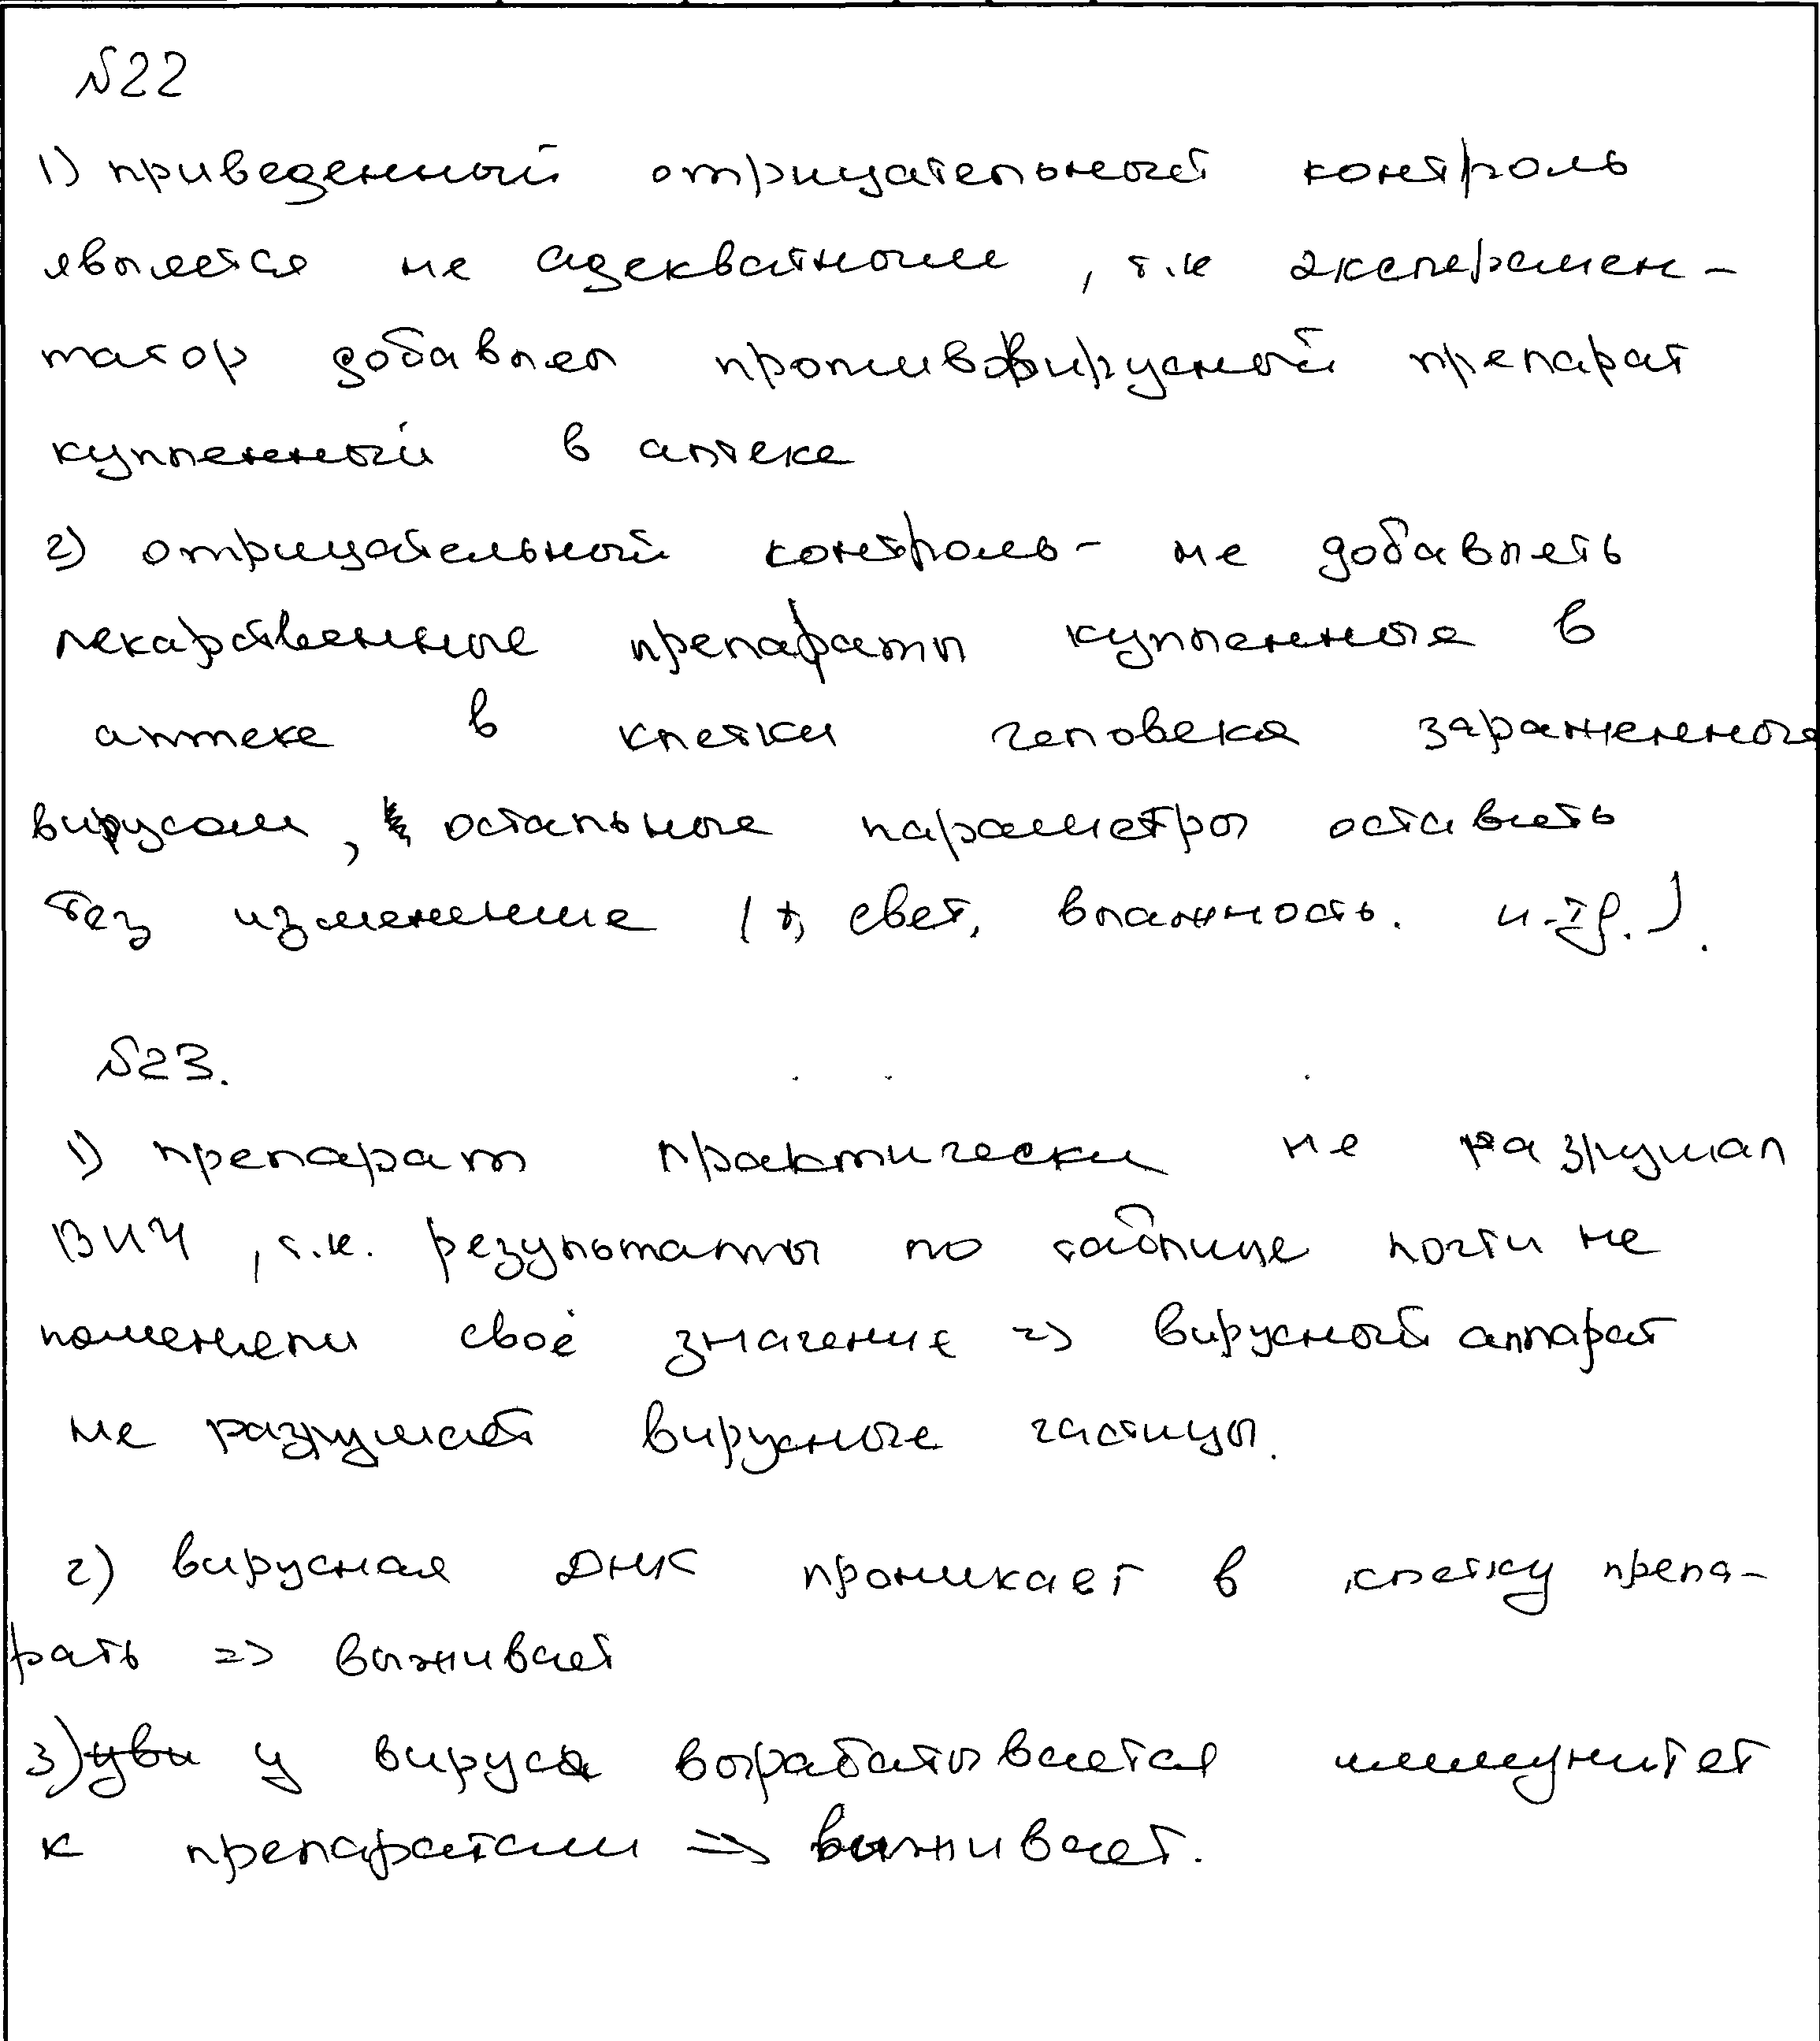 №22
1) приведенный отрицательный контроль
является не адекватным, т.к эксперемен-
татор добавлял противовирусный препарат
купленный в аптеке
2) отрицательный контроль - не добавлять
лекарственные препараты купленные в
аптеке в клетки человека зараженного
вирусом, остальные параметры оставить
без изменение (t, свет, влажность. и.тд.).
№23.
1) препарат практически не разрушал
ВИЧ, т.к. результаты по таблице почти не
поменяли своё значение => вирусный аппарат
не разрушает вирусные частицы.
2) вирусная ДНК проникает в клетку препа-
рать => выживает
3) уви у вируса вырабатывается иммунитет
к препаратам => выживает.